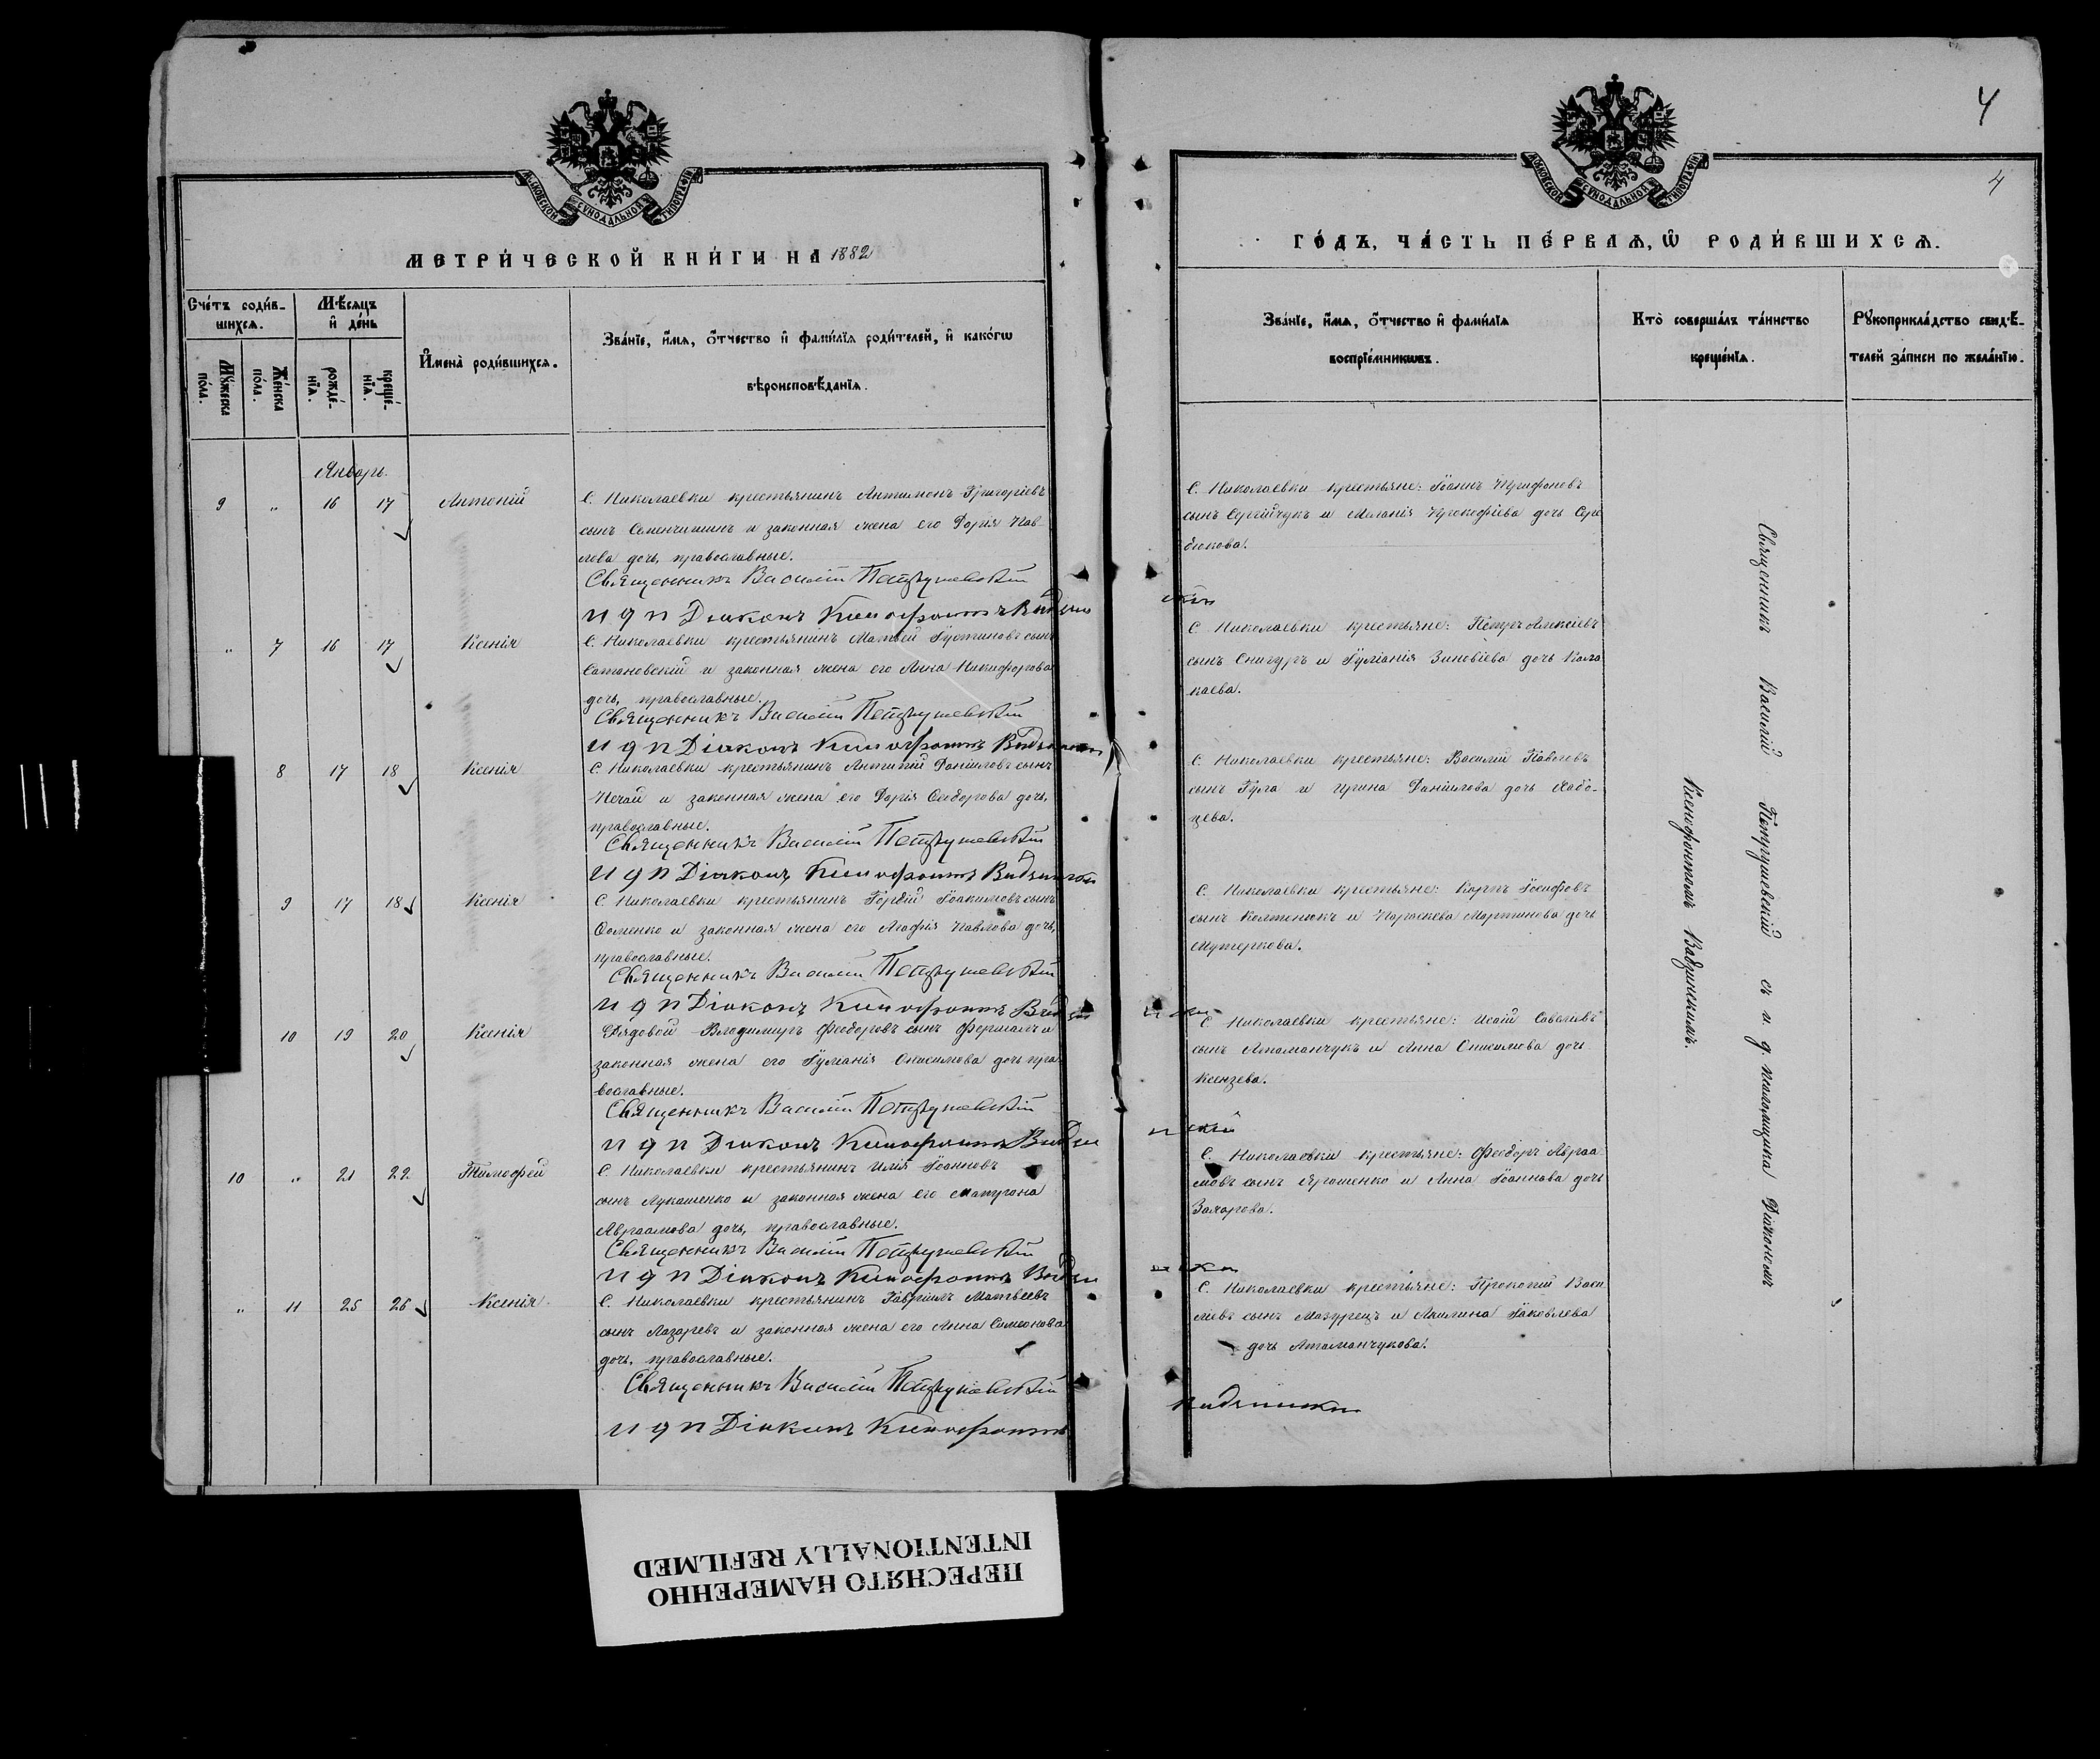 МОСКОВСКОЙ СѴНОДАЛЬНОЙ ТИПОГРАФІИ
МЕТРИ́ЧЕСКОЙ КНИ́ГИ НА 1882
Сче́тъ роди́в-
шихся.
Мѣ́сяцъ
и҆ де́нь
Му́жеска
по́ла.
Же́нска
по́ла.
рожде́-
нїя.
креще́-
нїя.
И҆мена̀ роди́вшихся.
Зва́нїе, и҆́мя, о҆́тчество и҆ фами́лїя роди́телей, и҆ како́гѡ
вѣроисповѣ́данїя.
Январь.
9 „ 16 17 Антоній
С. Николаевки крестьянинъ Антимонъ Григоріевъ
сынъ Семенчишинъ и законная жена его Дарія Пав-
лова дочь, православные.
Священникъ Василій Петрушевскій
и д п Діаконъ Ксенофонтъ
„ 7 16 17 Ксенія
С. Николаевки крестьянинъ Матвей Іустиновъ сынъ
Сатановскій и законная жена его Анна Никифорова
дочь, православные.
Священникъ Василій Петрушевскій
и д п Діаконъ Ксенофонтъ
8 17 18 Ксенія
С. Николаевки крестьянинъ Антипій Даніиловъ сынъ
Нечай и законная жена его Дарія Ѳеодорова дочь,
православные.
Священникъ Василій Петрушевскій
и д п Діаконъ Ксенофонтъ
9 17 18 Ксенія
С. Николаевки крестьянинъ Гордій Іоакимовъ сынъ
Ѳоменко и законная жена его Агафія Павлова дочь,
православные.
Священникъ Василій Петрушевскій
и д п Діаконъ Ксенофонтъ
10 19 20 Ксенія
Рядовой Владимиръ Феодоровъ сынъ и
законная жена его Іуліанія Онисимова дочь пра-
вославные.
Священникъ Василій Петрушевскій
и д п Діаконъ Ксенофонтъ
10 „ 21 22 Тимофей
С. Николаевки крестьянинъ Илія Іоанновъ
сынъ Лукашенко и законная жена его Матрона
Авраамова дочь, православные.
Священникъ Василій Петрушевскій
и д п Діаконъ Ксенофонтъ
„ 11 25 26 Ксенія
С. Николаевки крестьянинъ Гавріилъ Матвеевъ
сынъ Лазаревъ и законная жена его Анна Симеонова
дочь, православные.
Священникъ Василій Петрушевскій
и д п Діаконъ Ксенофонтъ
4
4
МОСКОВСКОЙ СѴНОДАЛЬНОЙ ТИПОГРАФІИ
ГО́ДЪ, ЧА́СТЬ ПЕ́РВАЯ, Ѡ҆ РОДИ́ВШИХСЯ.
Зва́нїе, и҆́мя, о҆́тчество и҆ фами́лїя
воспрїе́мниковъ.
Кто̀ соверша́лъ та́инство
креще́нїя.
Рукоприкла́дство свидѣ́-
телей за́писи по жела́нїю.
С. Николаевки крестьяне: Іоаннъ Трифоновъ
сынъ и Меланія Прокофіева дочь
С. Николаевки крестьяне: Петръ Алексіевъ
сынъ Снигуръ и Іуліанія Зиновіева дочь Кола-
С. Николаевки крестьяне: Василій Павловъ
сынъ Гула и Ирина Даніилова дочь
С. Николаевки крестьяне: Карпъ Іосифовъ
сынъ Колтонюкъ и Параскева Мартинова дочь
С. Николаевки крестьяне: Исаій
сынъ Атаманчукъ и Анна Онисимова дочь
Ксензева.
С. Николаевки крестьяне: Феодоръ Авраа-
мовъ сынъ Ярошенко и Анна Іоаннова дочь
Захарова.
С. Николаевки крестьяне: Прокопій Васи-
ліевъ сынъ Мазурецъ и Акилина Іаковлева
дочь Атаманчукова.
Священникъ Василій Петрушевскій съ и. д. псаломщика Діакономъ
Ксенофонтомъ
ПЕРЕСНЯТО НАМЕРЕННО
INTENTIONALLY REFILMED